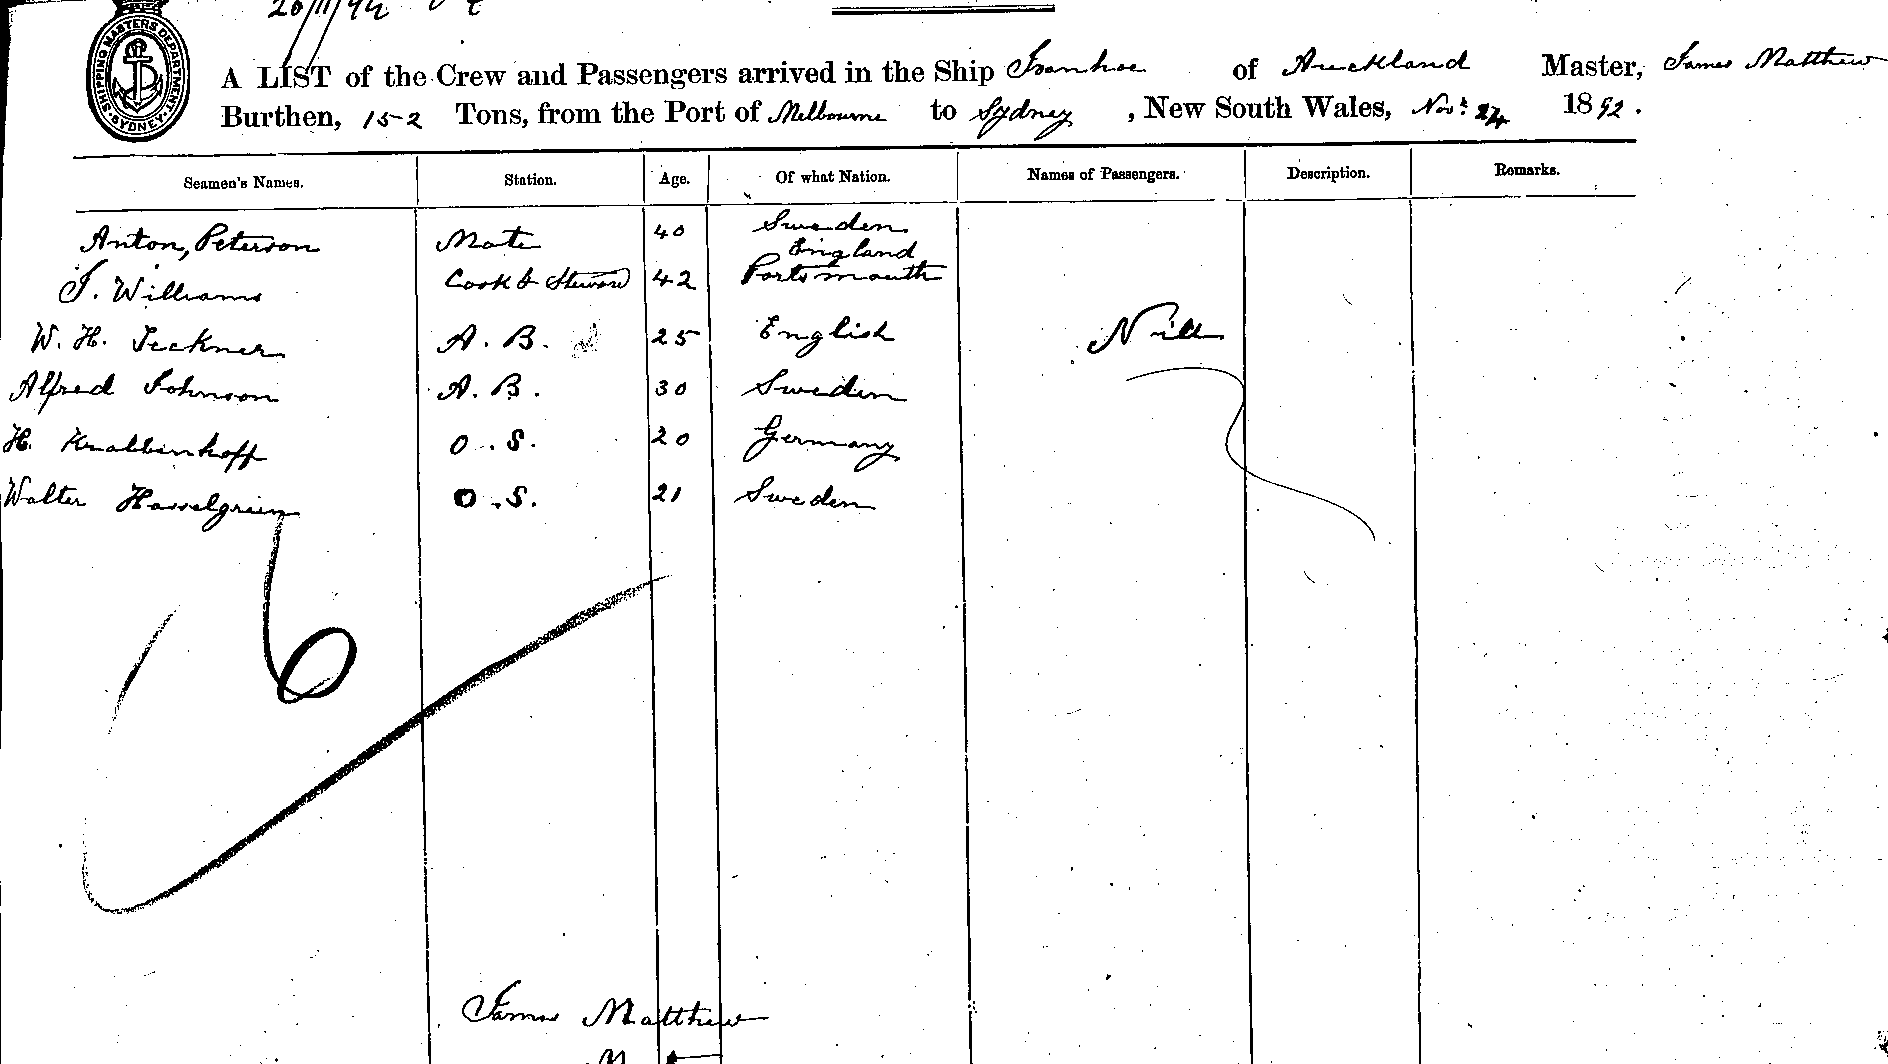 SHIPPING MASTERS DEPARTMENT
SYDNEY
A LIST of the Crew and Passengers arrived in the Ship Ivanhoe of Auckland Master, James Matthew
Burthen, 152 Tons, from the Port of Melbourne to Sydney, New South Wales, Novr 24 1892.
Seamen's Names. Station. Age. Of what Nation. Names of Passengers. Description. Remarks.
Anton, Peterson Mate 40 Sweden
England
J. Williams Cook & Steward 42 Portsmouth
W. H. Teckner A. B. 25 English Nill
Alfred Johnson A. B. 30 Sweden
H. Knabbinhoff O. S. 20 Germany
Walter Hasselgrein O. S. 21 Sweden
6
James Matthew